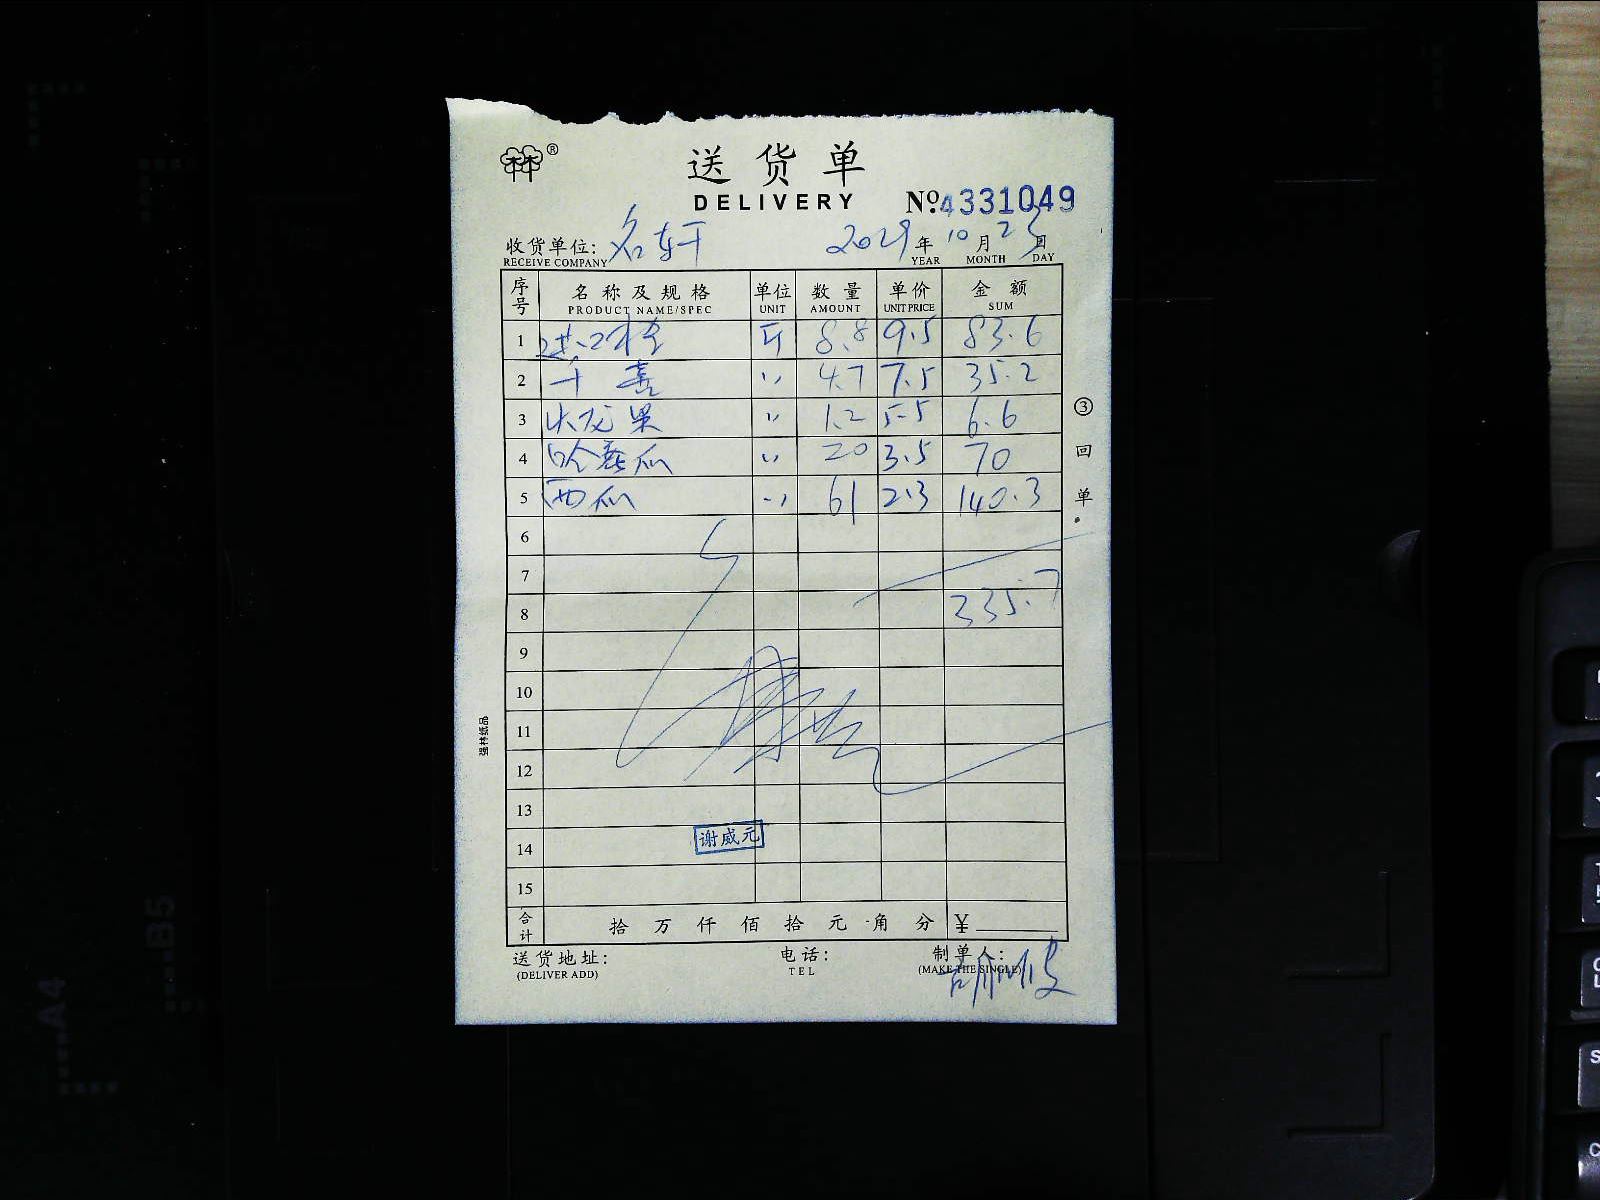 ®
送货单
DELIVERY
№4331049
收货单位: 名轩 2029年10月23日
RECEIVE COMPANY YEAR MONTH DAY
序号 名称及规格 单位 数量 单价 金额
PRODUCT NAME/SPEC UNIT AMOUNT UNIT PRICE SUM
1 进口橙 斤 8.8 9.5 83.6
2 〃 4.7 7.5 35.2
3 火龙果 〃 1.2 5.5 6.6
4 哈密瓜 〃 20 3.5 70
5 西瓜 〃 61 2.3 140.3
6
7
8 335.7
9
10
11
12
13
14 谢威元
15
合计 拾万仟佰拾元角分 ¥
送货地址: 电话: 制单人:
(DELIVER ADD) TEL (MAKE THE SINGLE)
③回单
强林纸品
A4
B5